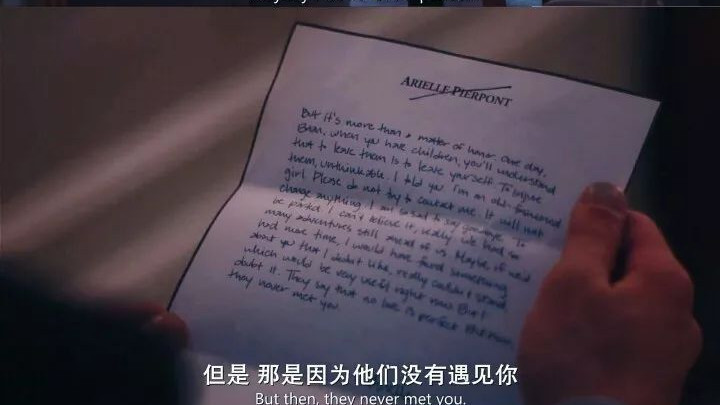 ARIELLE PIERPONT
But it's more than a matter of honor. One day,
Brian, when you have children, you'll understand
that to leave them is to leave yourself. To injure
them, unthinkable. I told you I'm an old-fashioned
girl. Please do not try to contact me. It will not
change anything. I am so sad to say goodbye. To
be parted. I can't believe it, really. We had so
many adventures still ahead of us. Maybe, if we'd
had more time, I would have found something
about you that I didn't like, really couldn't stand,
which would be very useful right now. But I
doubt it. They say that no love is perfect. But then,
they never met you.
但是 那是因为他们没有遇见你
But then, they never met you.